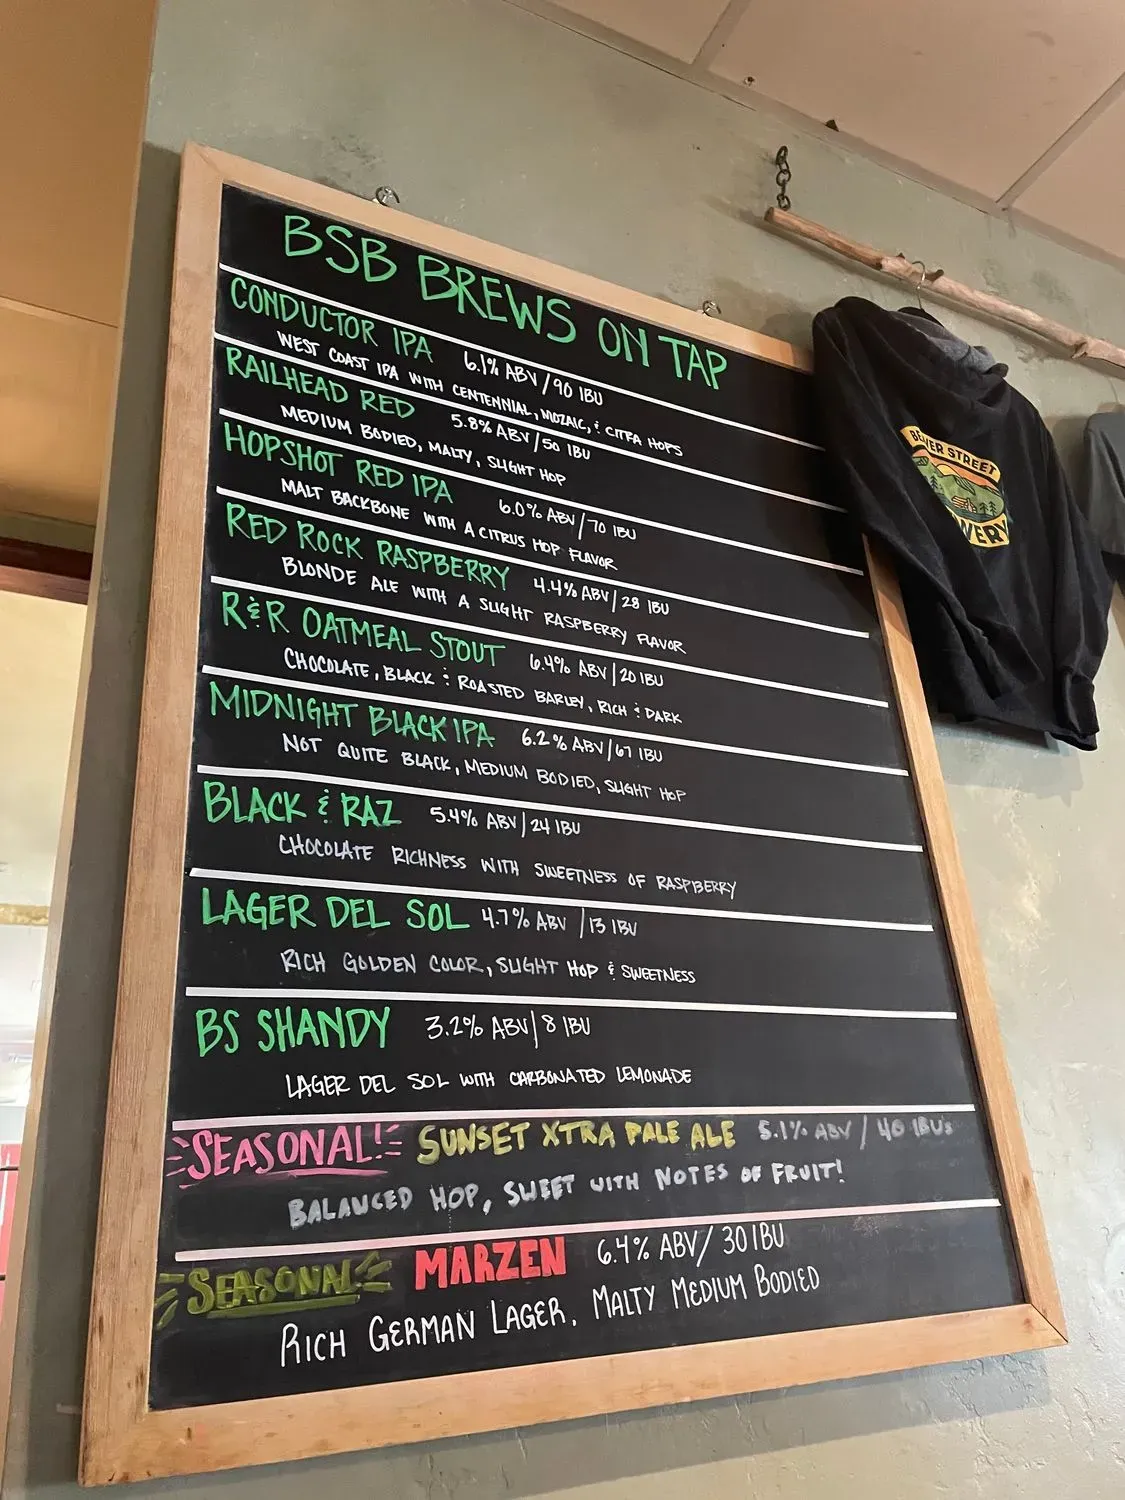 BSB BREWS ON TAP
CONDUCTOR IPA 6.1% ABV/90 IBU
WEST COAST IPA WITH CENTENNIAL, MOZAIC, & CITRA HOPS
RAILHEAD RED 5.8% ABV/50 IBU
MEDIUM BODIED, MALTY, SLIGHT HOP
HOPSHOT RED IPA 6.0% ABV/70 IBU
MALT BACKBONE WITH A CITRUS HOP FLAVOR
RED ROCK RASPBERRY 4.4% ABV/28 IBU
BLONDE ALE WITH A SLIGHT RASPBERRY FLAVOR
R&R OATMEAL STOUT 6.4% ABV/20 IBU
CHOCOLATE, BLACK & ROASTED BARLEY, RICH & DARK
MIDNIGHT BLACK IPA 6.2% ABV/67 IBU
NOT QUITE BLACK, MEDIUM BODIED, SLIGHT HOP
BLACK & RAZ 5.4% ABV/24 IBU
CHOCOLATE RICHNESS WITH SWEETNESS OF RASPBERRY
LAGER DEL SOL 4.7% ABV/13 IBU
RICH GOLDEN COLOR, SLIGHT HOP & SWEETNESS
BS SHANDY 3.2% ABV/8 IBU
LAGER DEL SOL WITH CARBONATED LEMONADE
SEASONAL! SUNSET XTRA PALE ALE 5.1% ABV / 40 IBUs
BALANCED HOP, SWEET WITH NOTES OF FRUIT!
SEASONAL MARZEN 6.4% ABV/ 30 IBU
RICH GERMAN LAGER, MALTY MEDIUM BODIED
BEAVER STREET